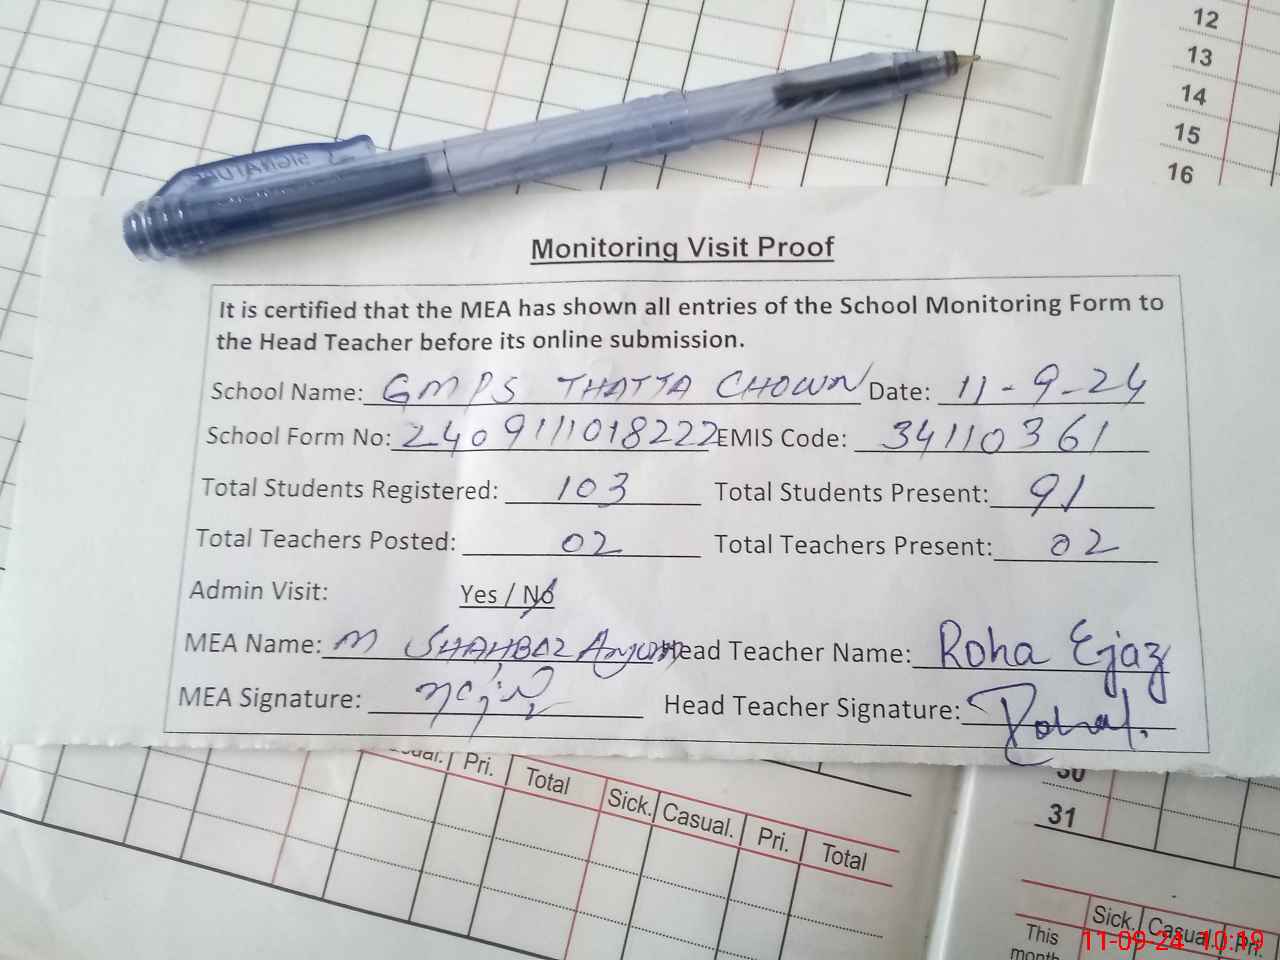 12
13
14
15
16
Monitoring Visit Proof
It is certified that the MEA has shown all entries of the School Monitoring Form to
the Head Teacher before its online submission.
School Name: GMPS THATTA CHOWN Date: 11-9-24
School Form No: 2409111018222 EMIS Code: 34110361
Total Students Registered: 103 Total Students Present: 91
Total Teachers Posted: 02 Total Teachers Present: 02
Admin Visit: Yes / No
MEA Name: M SHAHBAZ Anjum Head Teacher Name: Roha Ejaz
MEA Signature: Head Teacher Signature: Roha
Pri. Total Sick. Casual. Pri. Total
30
31
Sick. Casual. Pri.
This
month
11-09-24 10:19